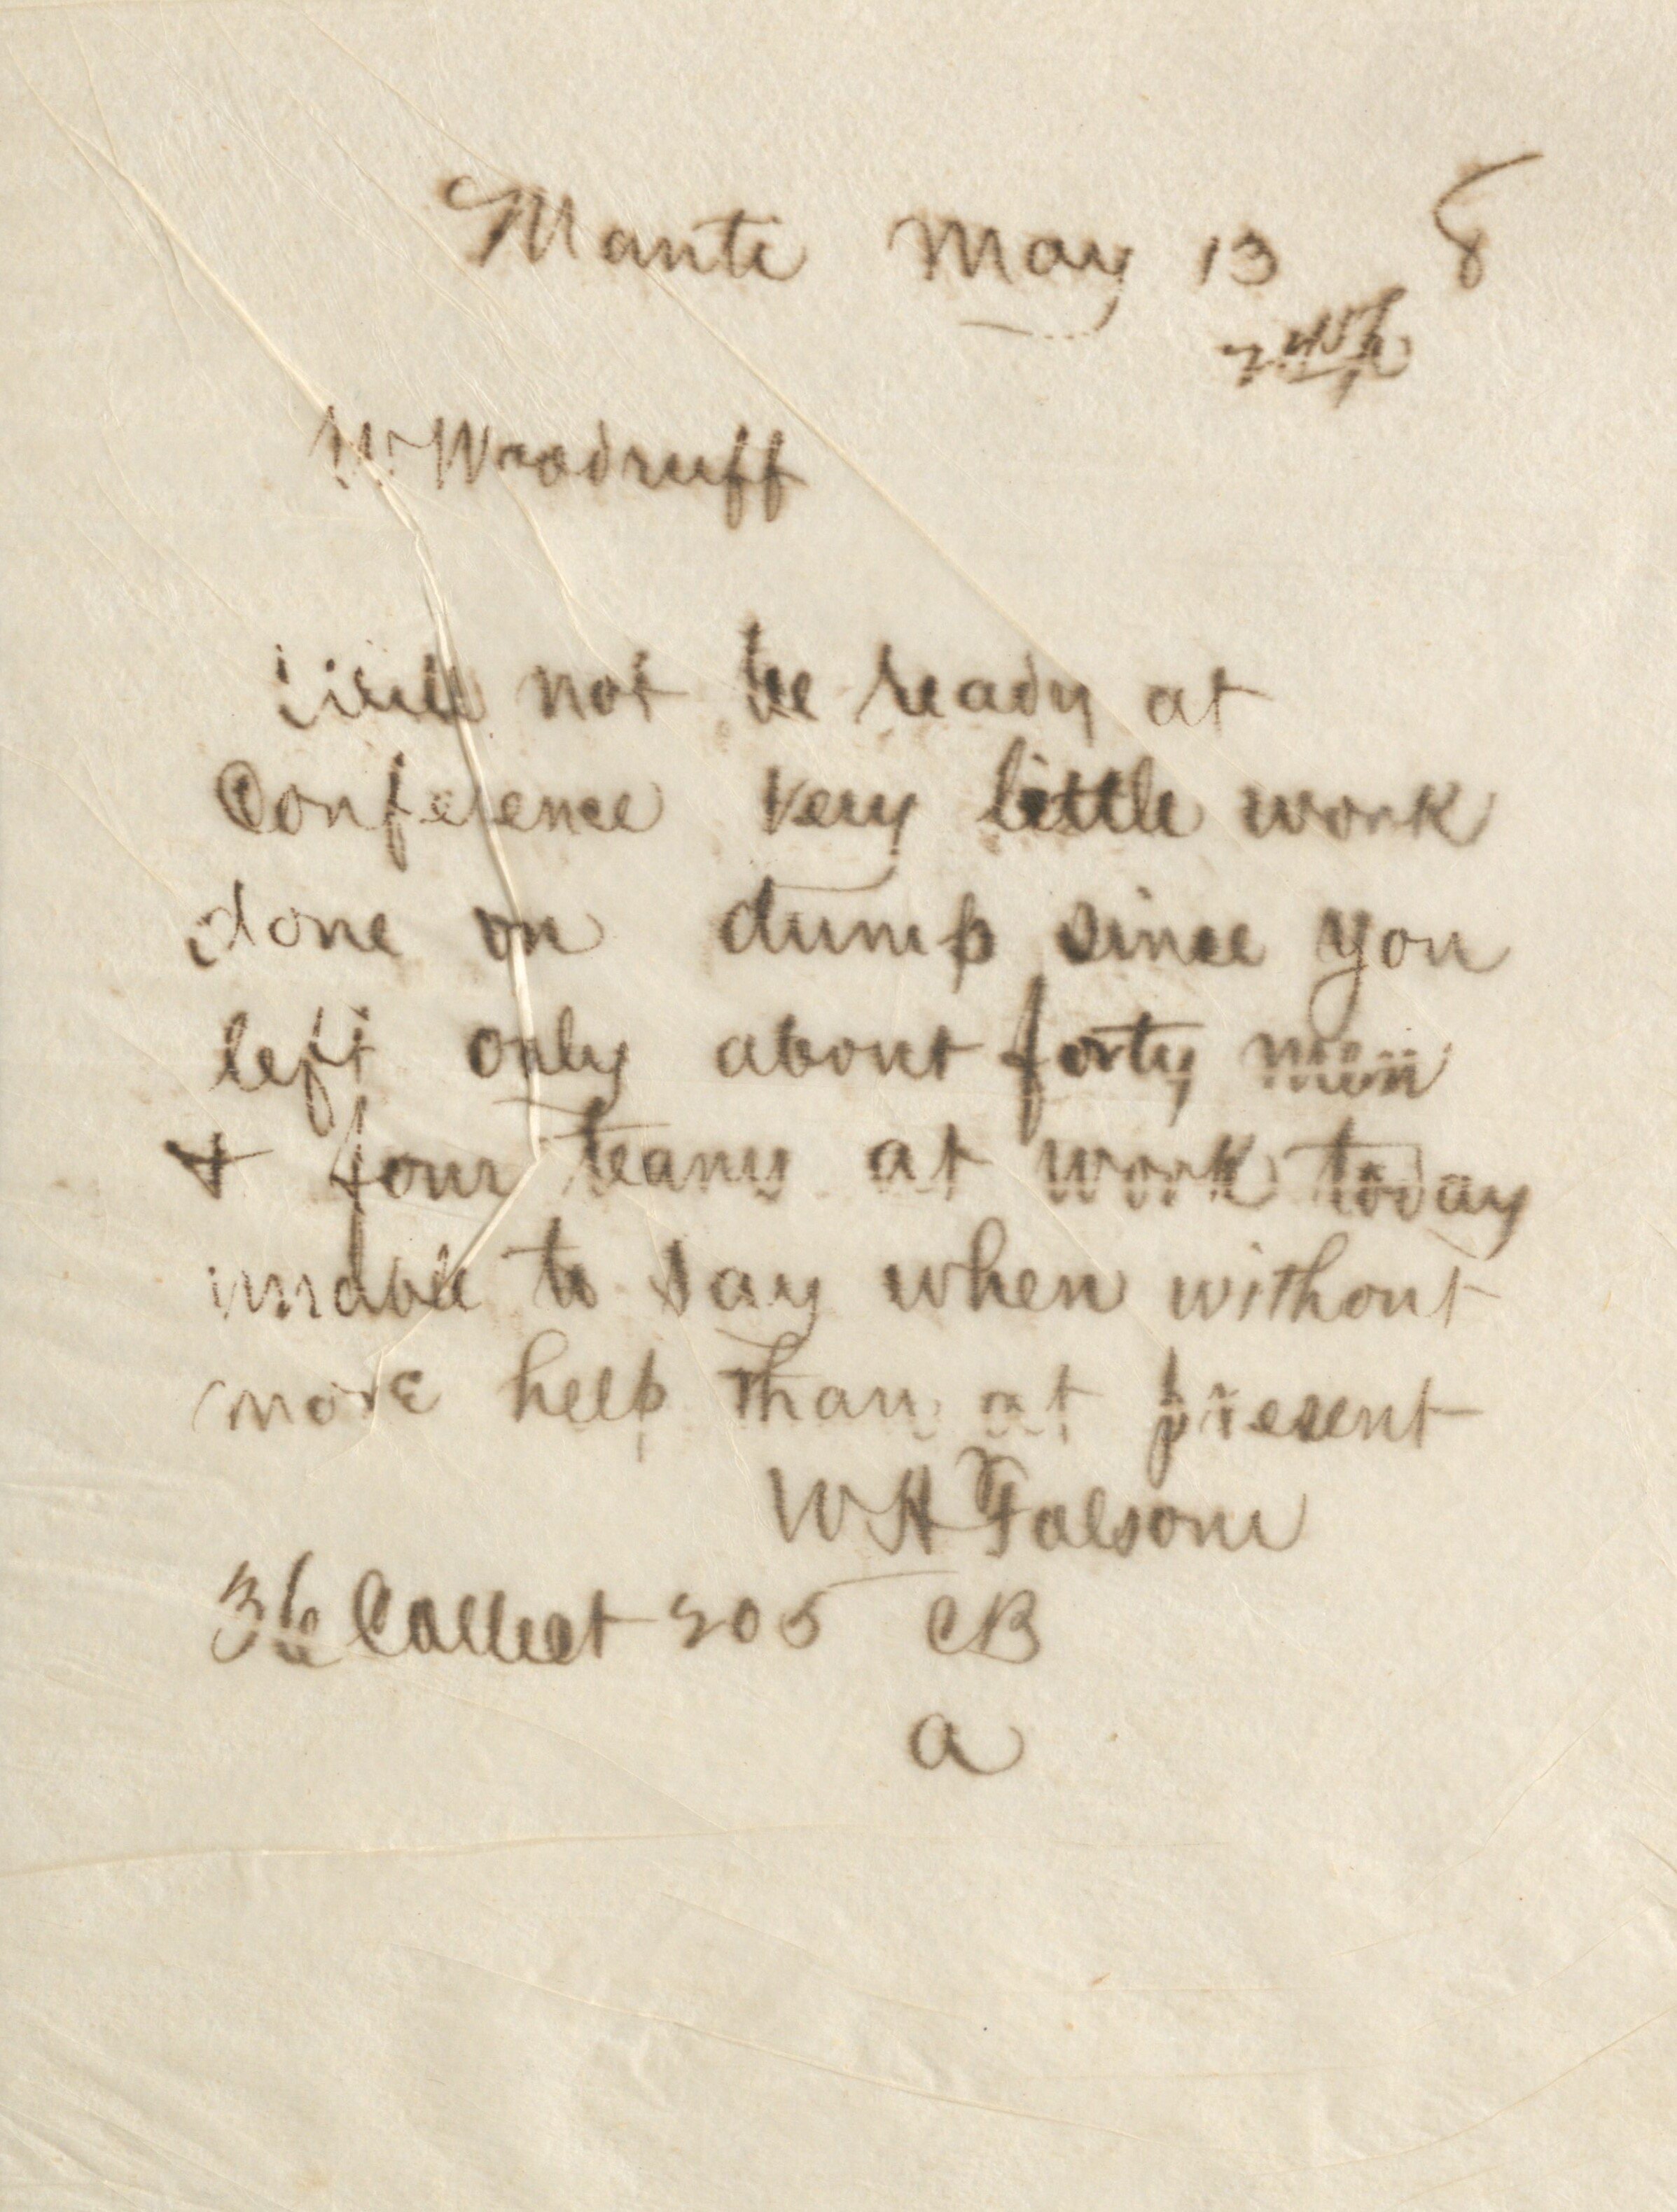 Manti May 13 8
W Woodruff
Will not be ready at
Conference very little work
done on dump since you
left only about forty men
& four teams at work today
unable to say when without
more help than at present
W H Folsom
36 Collect 205 CB
a